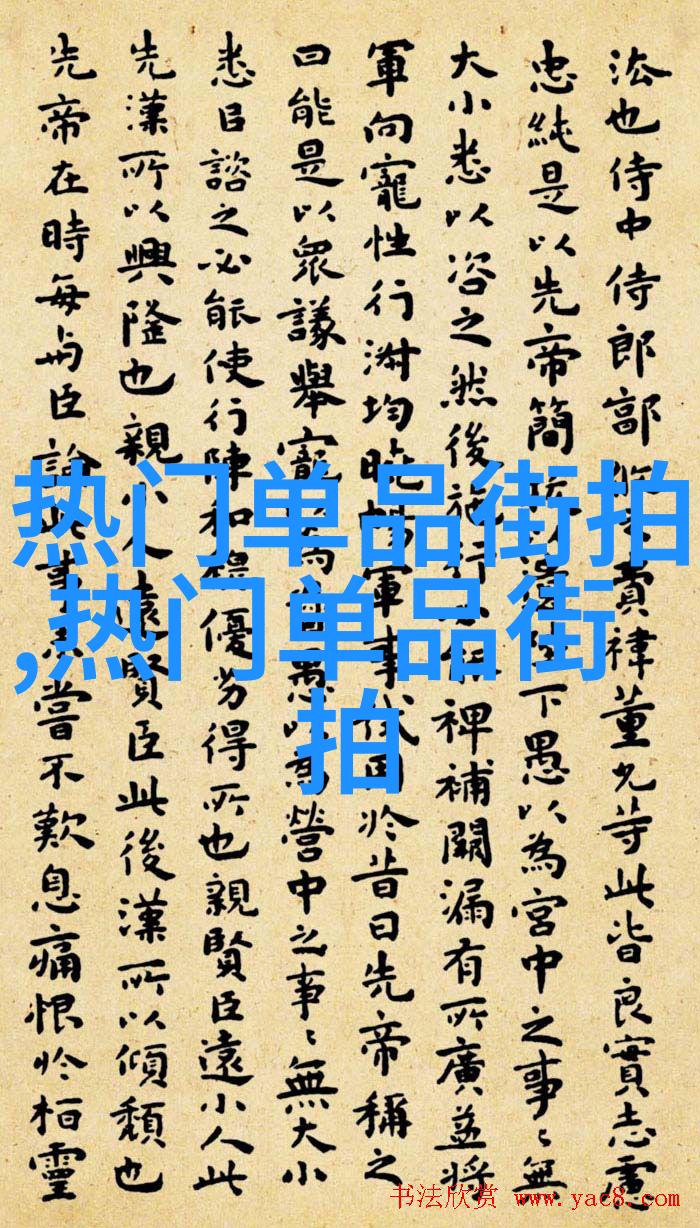 法也侍中侍郎郭費禕董允等此皆良實志慮
忠純是以先帝簡下愚以為宮中之事〻無
大小悉以咨之然後施行裨補闕漏有所廣益將
軍向寵性行淑均曉暢軍事用於昔日先帝稱之
曰能是以眾議舉寵為愚以為營中之事〻無大小
悉以諮之必能使行陣和穆優劣得所也親賢臣遠小人此
先漢所以興隆也親小人遠賢臣此後漢所以傾頹也
先帝在時每與臣論此事嘗不歎息痛恨於桓靈
热门单品街拍
,热门单品街
拍
书法欣赏 www.yac8.com